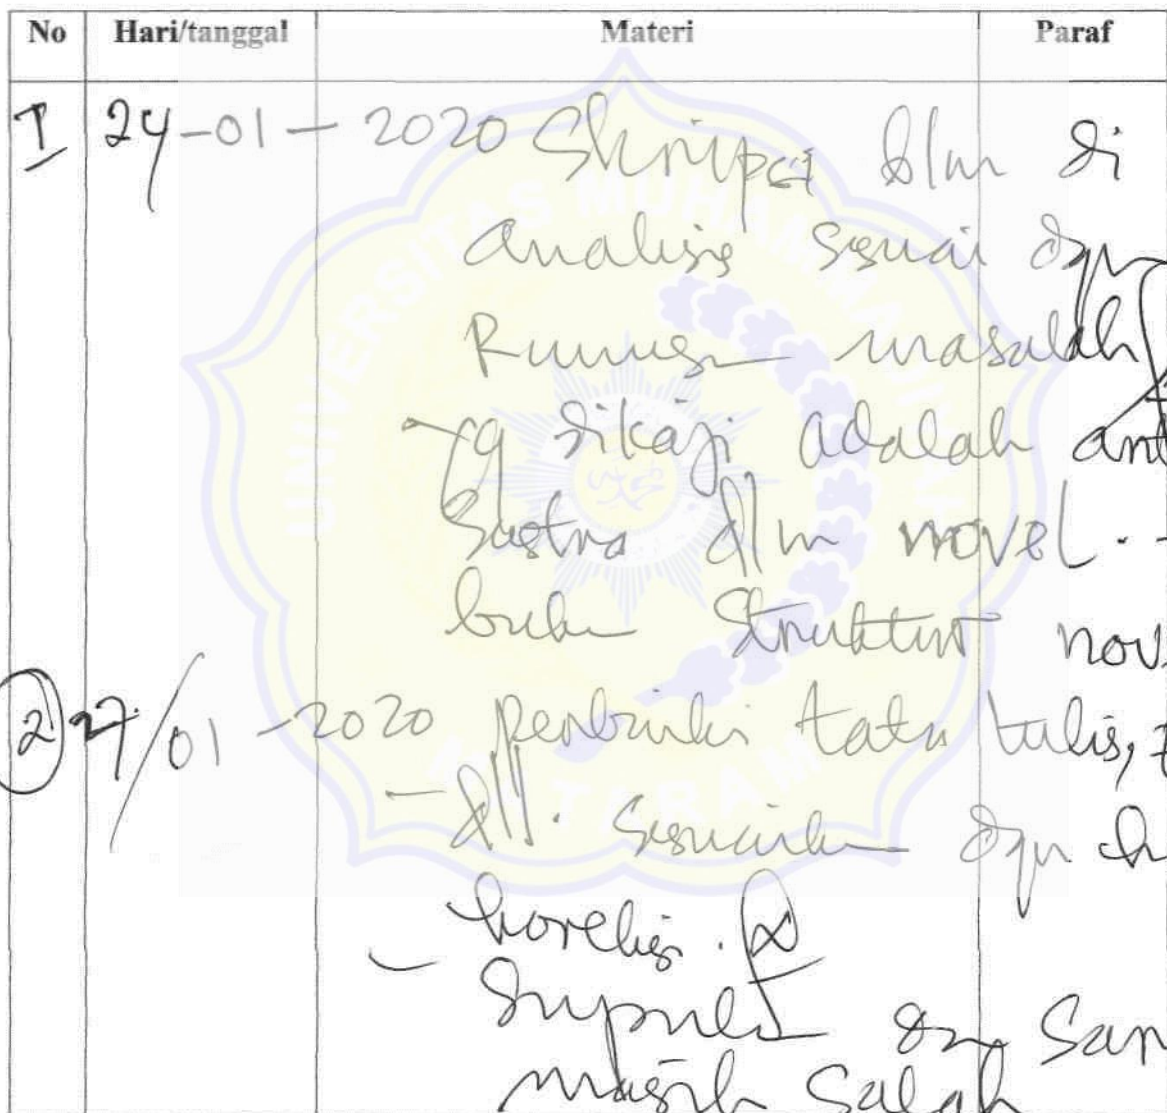 No Hari/tanggal Materi Paraf
I 24-01-2020 Skripsi blm di
analisis sesuai dgn
Rumusan masalah
- yg dikaji adalah ant
Sastra dlm novel..
bukan Struktur nov
2 27/01-2020 perbaiki tata tulis,
- dll. sesuaikan dgn h
koreksi.
- masih Salah
UNIVERSITAS MUHAMMADIYAH
MATARAM